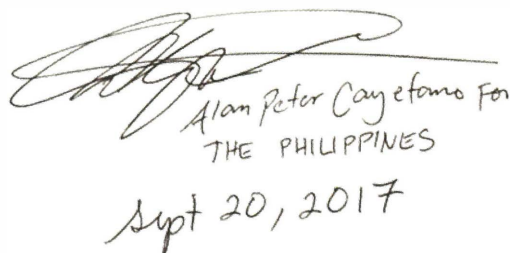 Alan Peter Cayetano For
THE PHILIPPINES
Sept 20, 2017